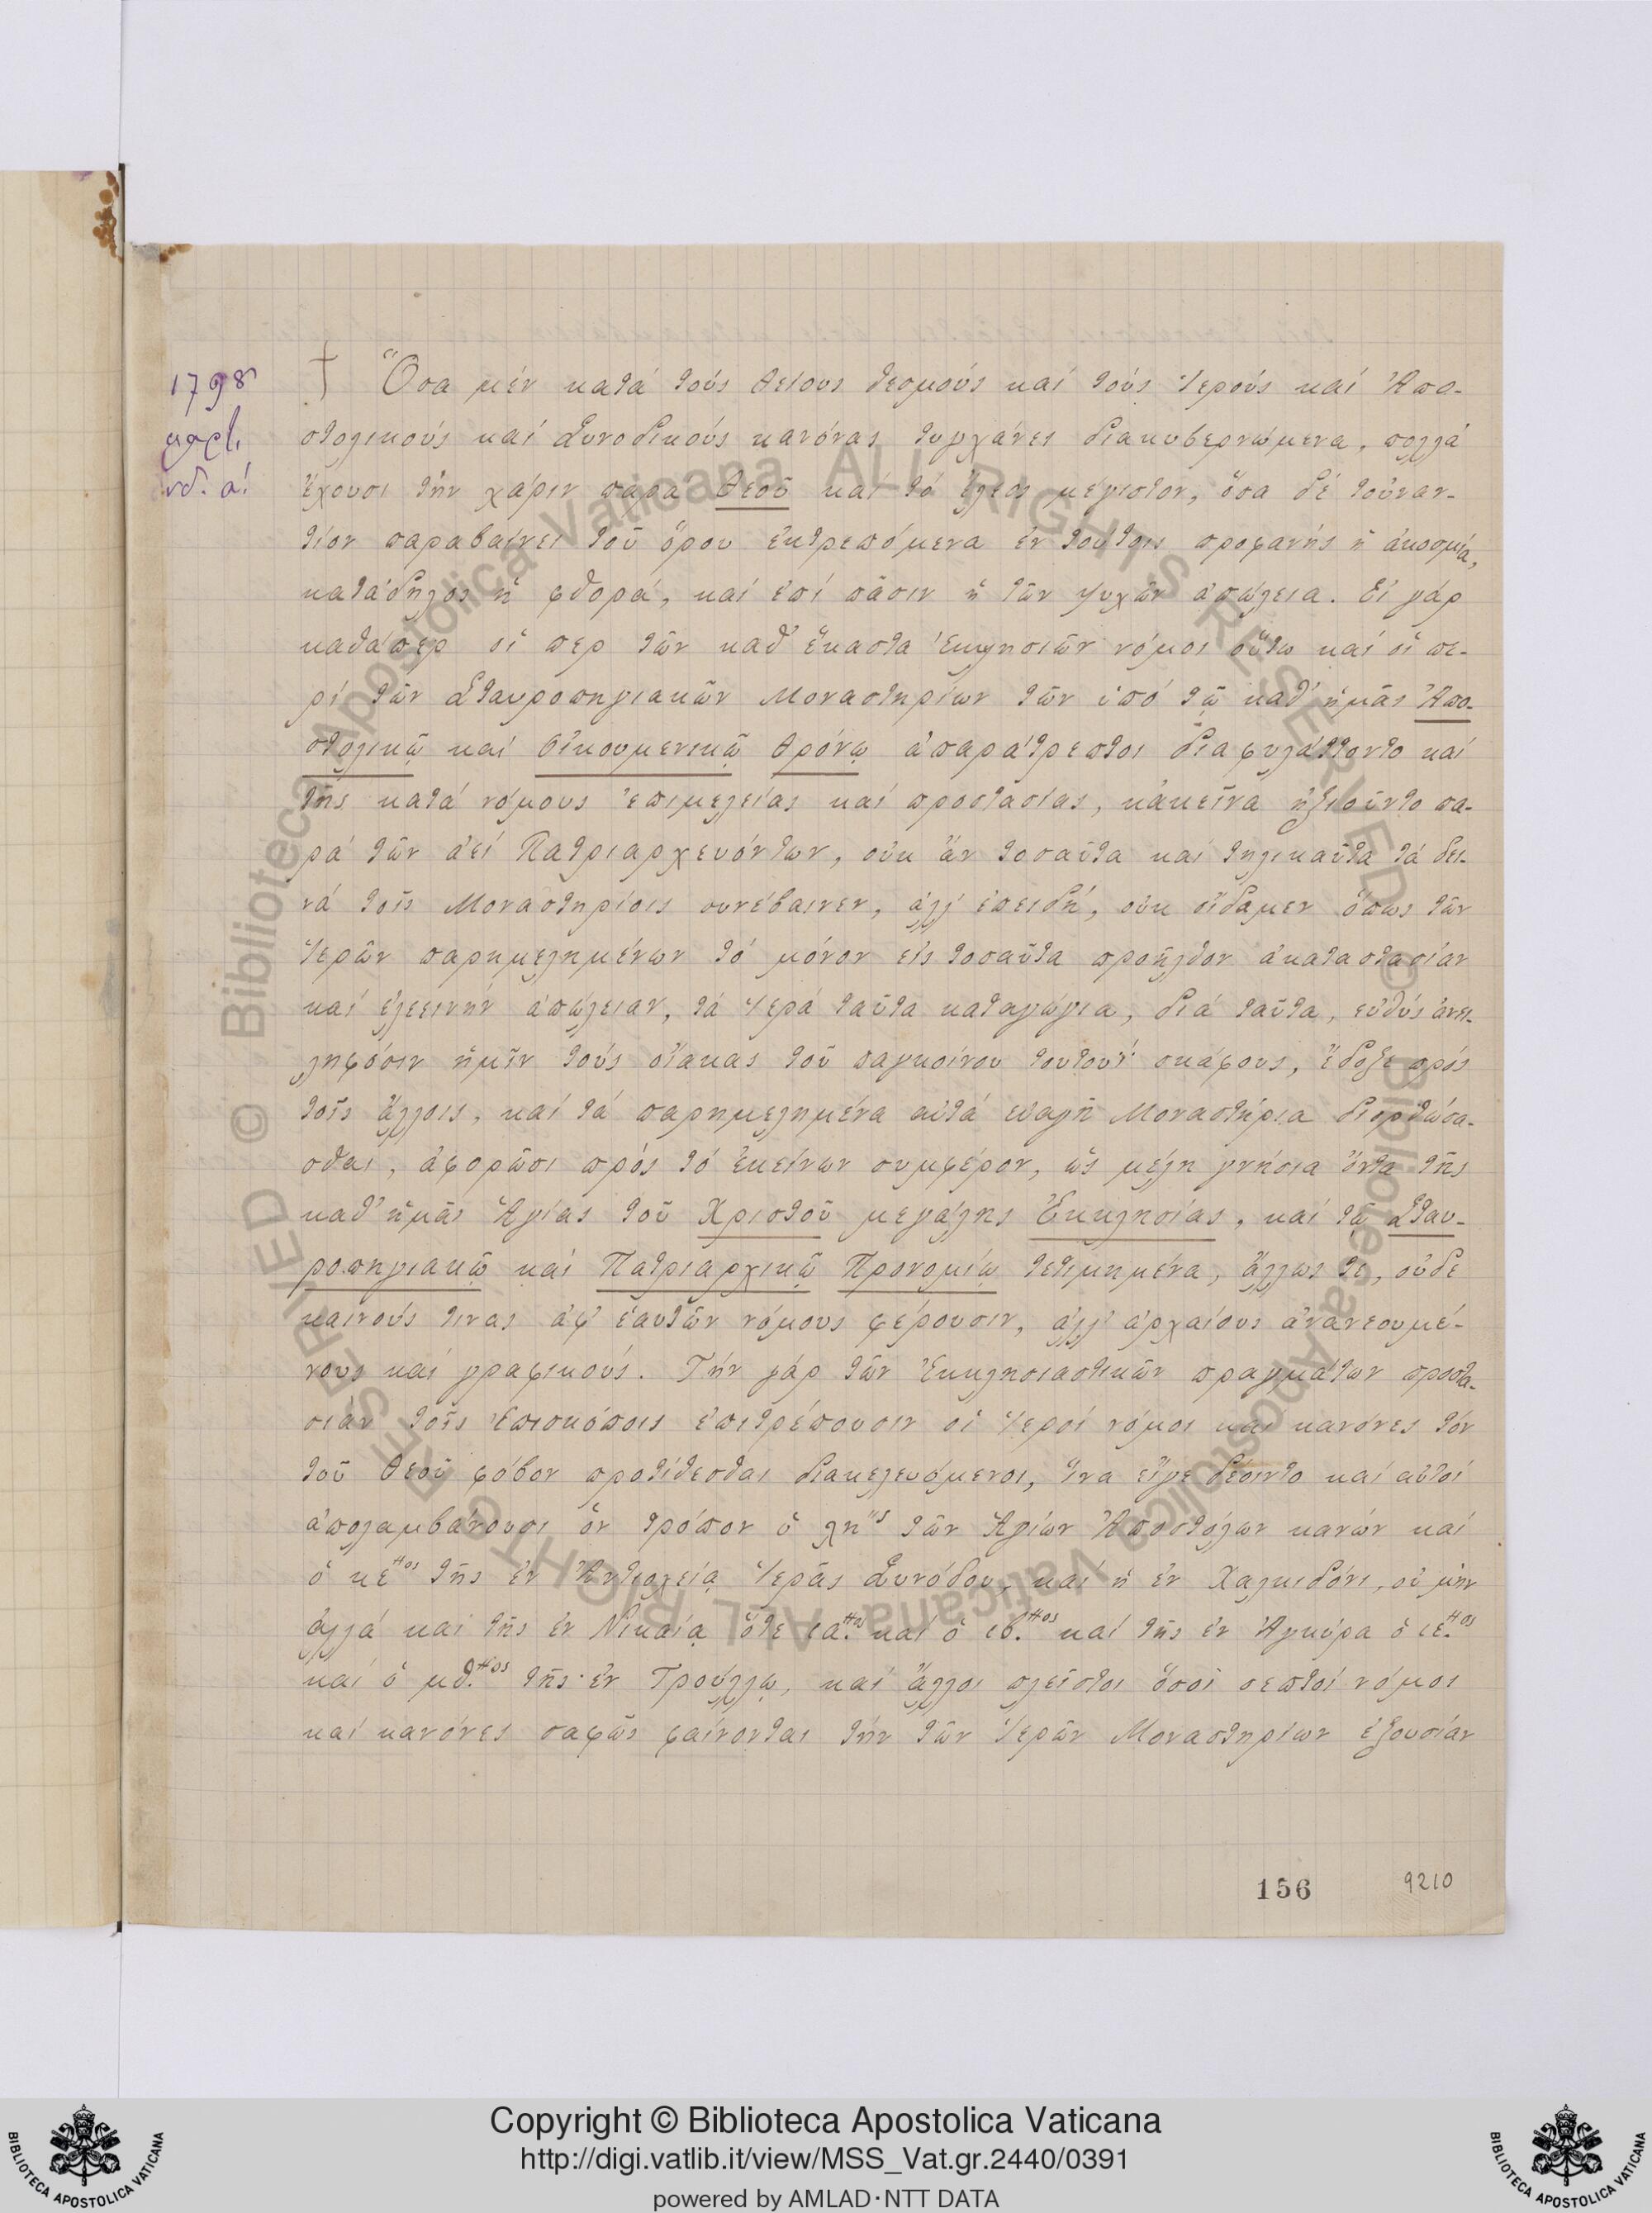 1798
μαρτι
νδ. α!
† Ὅσα μέν κατά τούς θείους θεσμούς καί τούς Ἱερούς καί Ἀπο-
στολικούς καί Συνοδικούς κανόνας τυγχάνει διακυβερνώμενα, πολλά
ἔχουσι τήν χάριν παρά Θεοῦ καί τό ἔλεος μέγιστον, ὅσα δέ τοὐναν-
τίον παραβαίνει τοῦ ὅρου ἐκτρεπόμενα ἐν τούτοις προφανής ἡ ἀκοσμία,
κατάδηλος ἡ φθορά, καί ἐπί πᾶσιν ἡ τῶν ψυχῶν ἀπώλεια. Εἰ γάρ
καθάπερ οἱ περ τῶν καθ' ἕκαστα Ἐκκλησιῶν νόμοι οὕτω καί οἱ πε-
ρί τῶν Σταυροπηγιακῶν Μοναστηρίων τῶν ὑπό τῷ καθ' ἡμᾶς Ἀπο-
στολικῷ καί Οἰκουμενικῷ Θρόνῳ ἀπαράτρεπτοι διαφυλάττοντο καί
τῆς κατά νόμους ἐπιμελείας καί προστασίας, κἀκεῖνα ἠξιοῦντο πα-
ρά τῶν ἀεί Πατριαρχευόντων, οὐκ ἄν τοσαῦτα καί τηλικαῦτα τά δει-
νά τοῖς Μοναστηρίοις συνέβαινεν, ἀλλ' ἐπειδή, οὐκ οἴδαμεν ὅπως τῶν
Ἱερῶν παρημελημένων τό μόνον εἰς τοσαῦτα προῆλθον ἀκαταστασίαν
καί ἐλεεινήν ἀπώλειαν, τά Ἱερά ταῦτα καταγώγια, διά ταῦτα, εὐθύς ἀνει-
ληφόσιν ἡμῖν τούς οἴακας τοῦ παγκοίνου τουτουΐ σκάφους, ἔδοξε πρός
τοῖς ἄλλοις, καί τά παρημελημένα αὐτά εὐαγῆ Μοναστήρια διορθώσα-
σθαι, ἀφορῶσι πρός τό ἐκείνων συμφέρον, ὡς μέλη γνήσια ὄντα τῆς
καθ' ἡμᾶς Ἁγίας τοῦ Χριστοῦ μεγάλης Ἐκκλησίας, καί τῷ Σταυ-
ροπηγιακῷ καί Πατριαρχικῷ Προνομίῳ τετιμημένα, ἄλλως τε, οὐδέ
καινούς τινας ἀφ' ἑαυτῶν νόμους φέρουσιν, ἀλλ' ἀρχαίους ἀνανεουμέ-
νους καί γραφικούς. Τήν γάρ τῶν Ἐκκλησιαστικῶν πραγμάτων προστα-
σιαν τοῖς Ἐπισκόποις ἐπιτρέπουσιν οἱ Ἱεροί νόμοι και κανόνες τόν
τοῦ Θεοῦ φόβον προτίθεσθαι διακελευόμενοι, ἵνα εἴγε δέοιντο καί αὐτοί
ἀπολαμβάνουσι ὅν τρόπον ὁ λη'ς τῶν Ἁγίων Ἀποστόλων κανών καί
ὁ κε.ος τῆς ἐν Ἀντιοχείᾳ Ἱερᾶς Συνόδου, καί ἡ ἐν Χαλκιδόνι, οὐ μήν
ἀλλά και τῆς ἐν Νικαίᾳ ὅτε ια.ος καί ὁ ιβ.ος καί τῆς ἐν Ἀγκύρα ὁ ιε.ος
καί ὁ μθ.ος τῆς ἐν Τρούλλῳ, καί ἄλλοι πλεῖστοι ὅσοι σεπτοί νόμοι
καί κανόνες σαφῶς φαίνονται τήν τῶν Ἱερῶν Μοναστηρίων ἐξουσίαν
156 9210
© Biblioteca Apostolica Vaticana ALL RIGHTS RESERVED © Biblioteca Apostolica Vaticana ALL RIGHTS RESERVED
Copyright © Biblioteca Apostolica Vaticana
http://digi.vatlib.it/view/MSS_Vat.gr.2440/0391
powered by AMLAD·NTT DATA
BIBLIOTECA APOSTOLICA VATICANA
BIBLIOTECA APOSTOLICA VATICANA